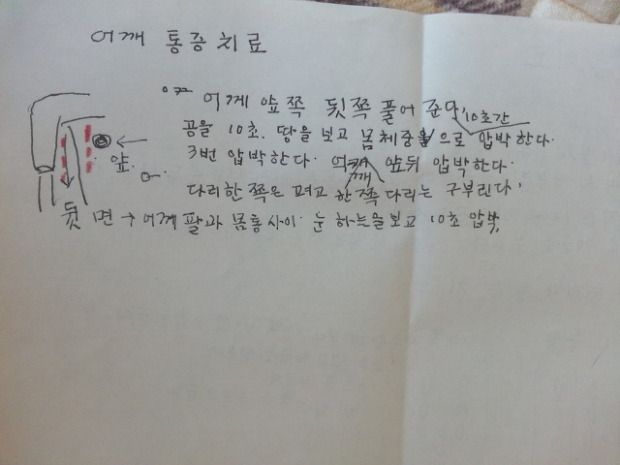 어깨 통증치료
어게 앞쪽 뒷쪽 풀어 준다, 10초간
공을 10초. 땅을 보고 몸체중 으로 압박한다.
3번 압박한다. 어깨 앞뒤 압박한다.
다리한쪽은 펴고 한쪽다리는 구부린다,
앞.
뒷면→어게팔과 몸통사이. 눈 하늘을보고 10초 압박,